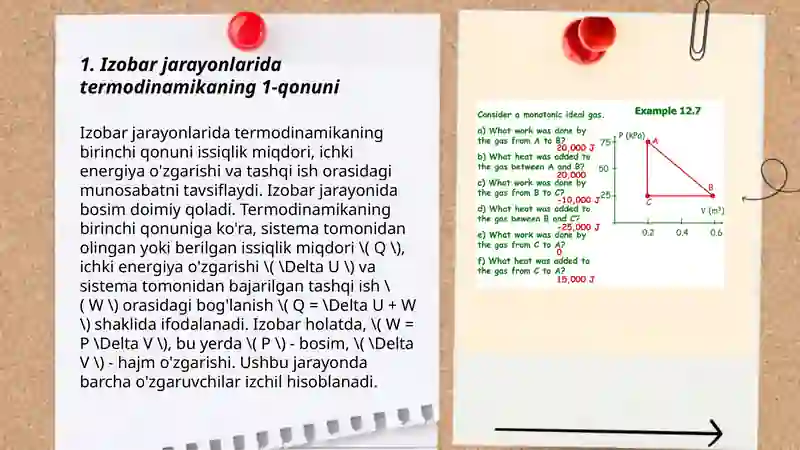 1. Izobar jarayonlarida
termodinamikaning 1-qonuni
Izobar jarayonlarida termodinamikaning
birinchi qonuni issiqlik miqdori, ichki
energiya o'zgarishi va tashqi ish orasidagi
munosabatni tavsiflaydi. Izobar jarayonida
bosim doimiy qoladi. Termodinamikaning
birinchi qonuniga ko'ra, sistema tomonidan
olingan yoki berilgan issiqlik miqdori \( Q \),
ichki energiya o'zgarishi \( \Delta U \) va
sistema tomonidan bajarilgan tashqi ish \
( W \) orasidagi bog'lanish \( Q = \Delta U + W
\) shaklida ifodalanadi. Izobar holatda, \( W =
P \Delta V \), bu yerda \( P \) - bosim, \( \Delta
V \) - hajm o'zgarishi. Ushbu jarayonda
barcha o'zgaruvchilar izchil hisoblanadi.
Example 12.7
Consider a monotonic ideal gas.
a) What work was done by
the gas from A to B?
20,000 J
b) What heat was added to
the gas between A and B?
20,000
c) What work was done by
the gas from B to C?
-10,000 J
d) What heat was added to
the gas beween B and C?
-25,000 J
e) What work was done by
the gas from C to A?
0
f) What heat was added to
the gas from C to A?
15,000 J
P (kPa)
75
A
50
B
25
C
V (m³)
0.2 0.4 0.6